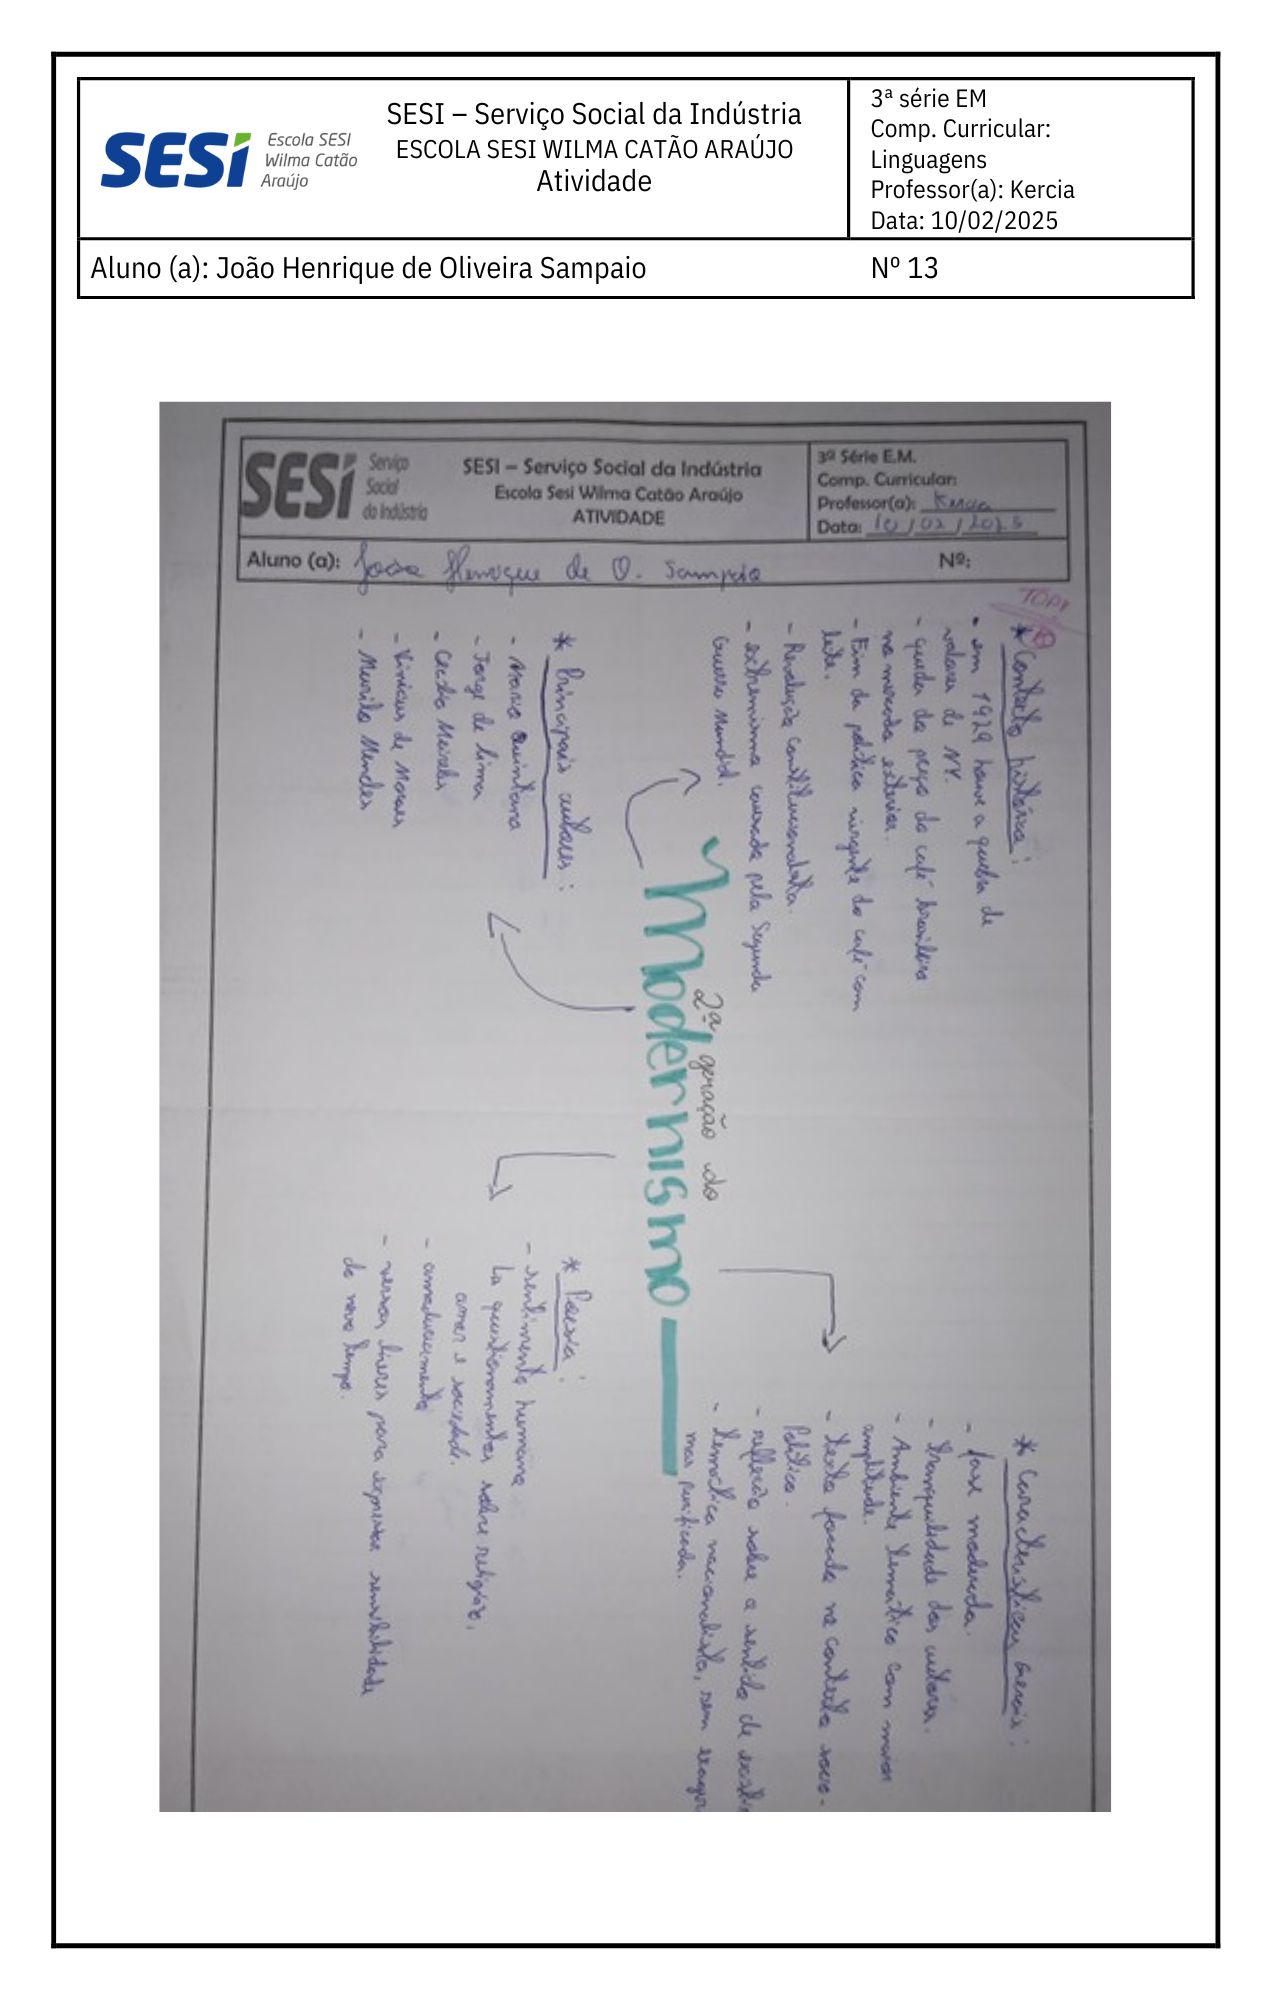 SESI
Escola SESI
Wilma Catão
Araújo
SESI – Serviço Social da Indústria
ESCOLA SESI WILMA CATÃO ARAÚJO
Atividade
3ª série EM
Comp. Curricular:
Linguagens
Professor(a): Kercia
Data: 10/02/2025
Aluno (a): João Henrique de Oliveira Sampaio
Nº 13
SESI
Serviço
Social
da Indústria
SESI – Serviço Social da Indústria
Escola Sesi Wilma Catão Araújo
ATIVIDADE
3ª Série E.M.
Comp. Curricular:
Professor(a): Kercia
Data: 10/02/2025
Aluno (a): João Henrique de O. Sampaio
Nº:
TOP!
* Contexto histórico:
- em 1929 houve a quebra de
valores de NY.
- queda do preço do café brasileiro
no mercado exterior.
- Fim da política vigente do café com
leite.
- Revolução constitucionalista.
- extremismo causado pela Segunda
Guerra Mundial.
* Principais autores:
- Mario Quintana
- Jorge de Lima
- Cecília Meireles
- Vinicius de Moraes
- Murilo Mendes
2ª geração do
Modernismo
* Características Gerais:
- fase madura.
- tranquilidade dos autores.
- Ambiente temático com maior
amplitude.
- texto focado no contexto socio-
Político.
- reflexão sobre o sentido de
- temática nacionalista, sem
mas
* Poesia:
- sentimento humano
questionamentos sobre religião,
amor e sociedade.
- amadurecimento
- versos livres para expressar sensibilidade
do novo tempo.